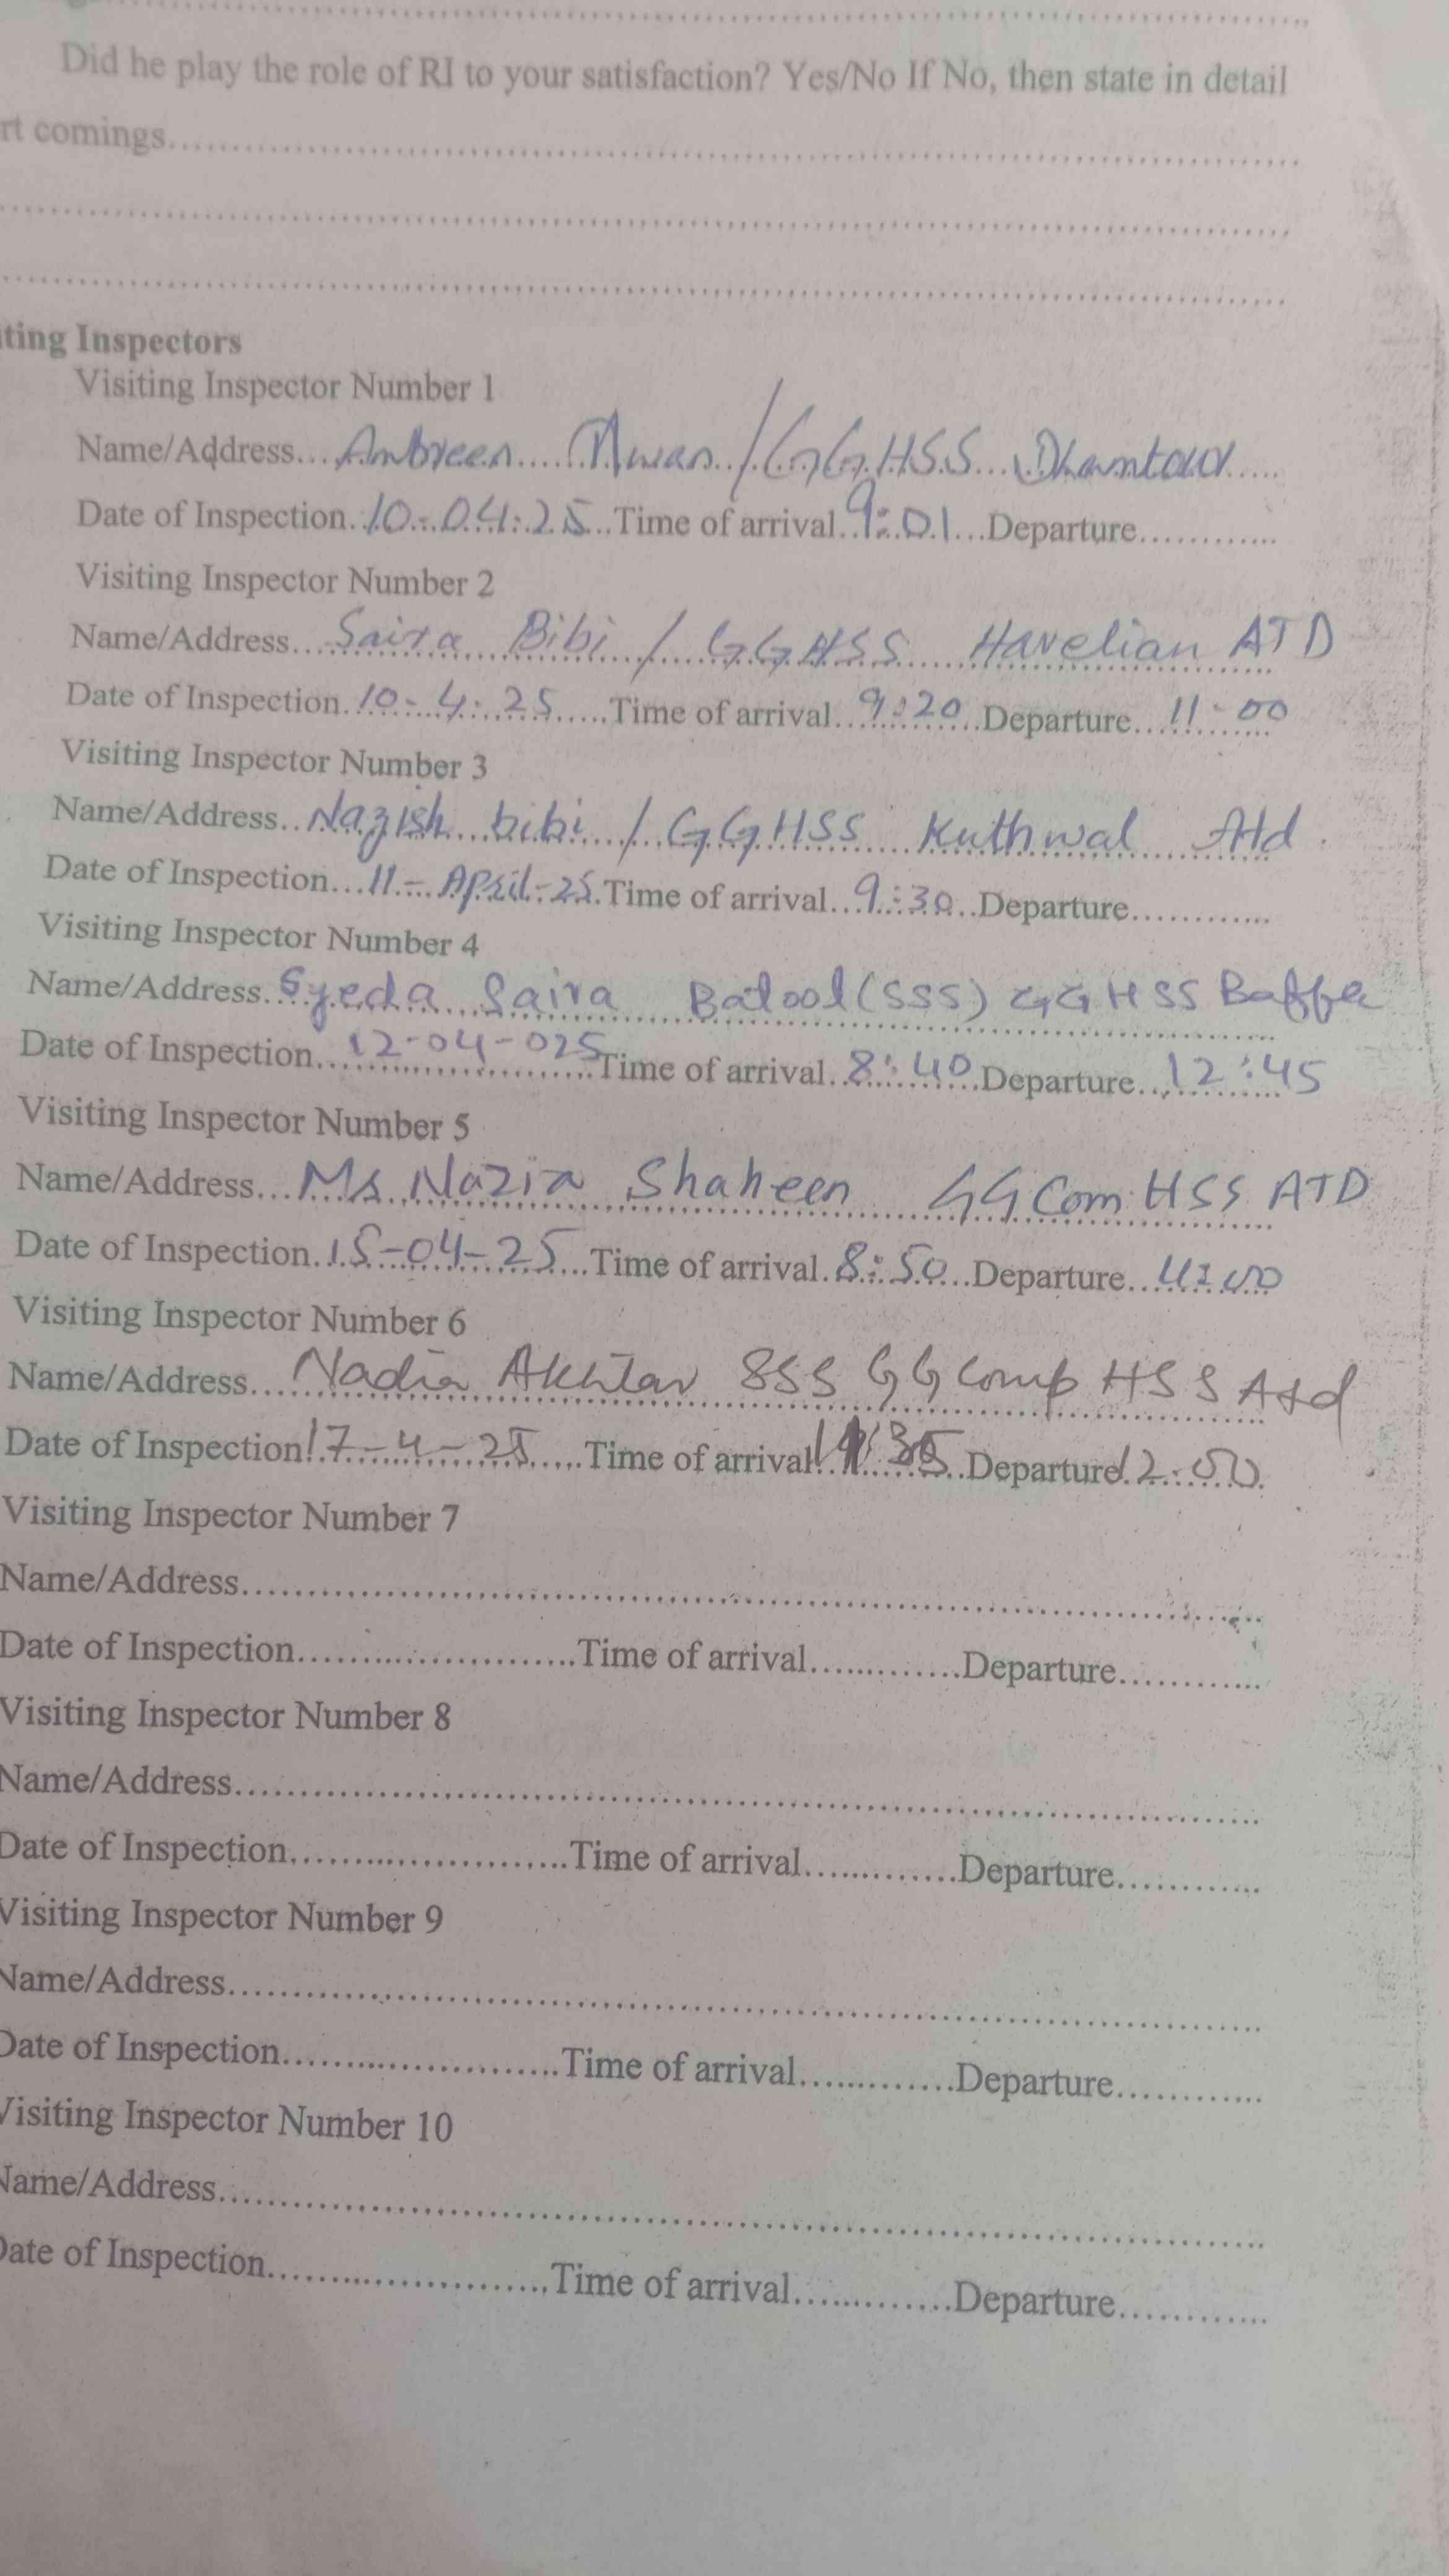 Did he play the role of RI to your satisfaction? Yes/No If No, then state in detail
rt comings
ting Inspectors
Visiting Inspector Number 1
Name/Address... Ambreen Awan / GGHSS Dhamtour
Date of Inspection. 10-04-25 Time of arrival. 9:01 Departure............
Visiting Inspector Number 2
Name/Address... Saira Bibi / GGHSS Havelian ATD
Date of Inspection. 10-4-25 Time of arrival. 9:20 Departure... 11-00
Visiting Inspector Number 3
Name/Address.. Nazish bibi / GGHSS Kuthwal Atd.
Date of Inspection... 11-April-25. Time of arrival.. 9:30 Departure............
Visiting Inspector Number 4
Name/Address. Syeda Saira Batool (SSS) GGHSS Baffa
Date of Inspection... 12-04-025 Time of arrival.. 8:40 Departure... 12:45
Visiting Inspector Number 5
Name/Address... Ms Nazia Shaheen GG Com: HSS ATD
Date of Inspection. 15-04-25 Time of arrival. 8:50 Departure..
Visiting Inspector Number 6
Name/Address... Nadia Akhtar SSS GG Comp HSS Atd
Date of Inspection. 17-4-25 Time of arrival Departure 12:00
Visiting Inspector Number 7
Name/Address............
Date of Inspection............ Time of arrival............ Departure............
Visiting Inspector Number 8
Name/Address............
Date of Inspection............ Time of arrival............ Departure............
Visiting Inspector Number 9
Name/Address............
Date of Inspection............ Time of arrival............ Departure............
Visiting Inspector Number 10
Name/Address............
Date of Inspection............ Time of arrival............ Departure............